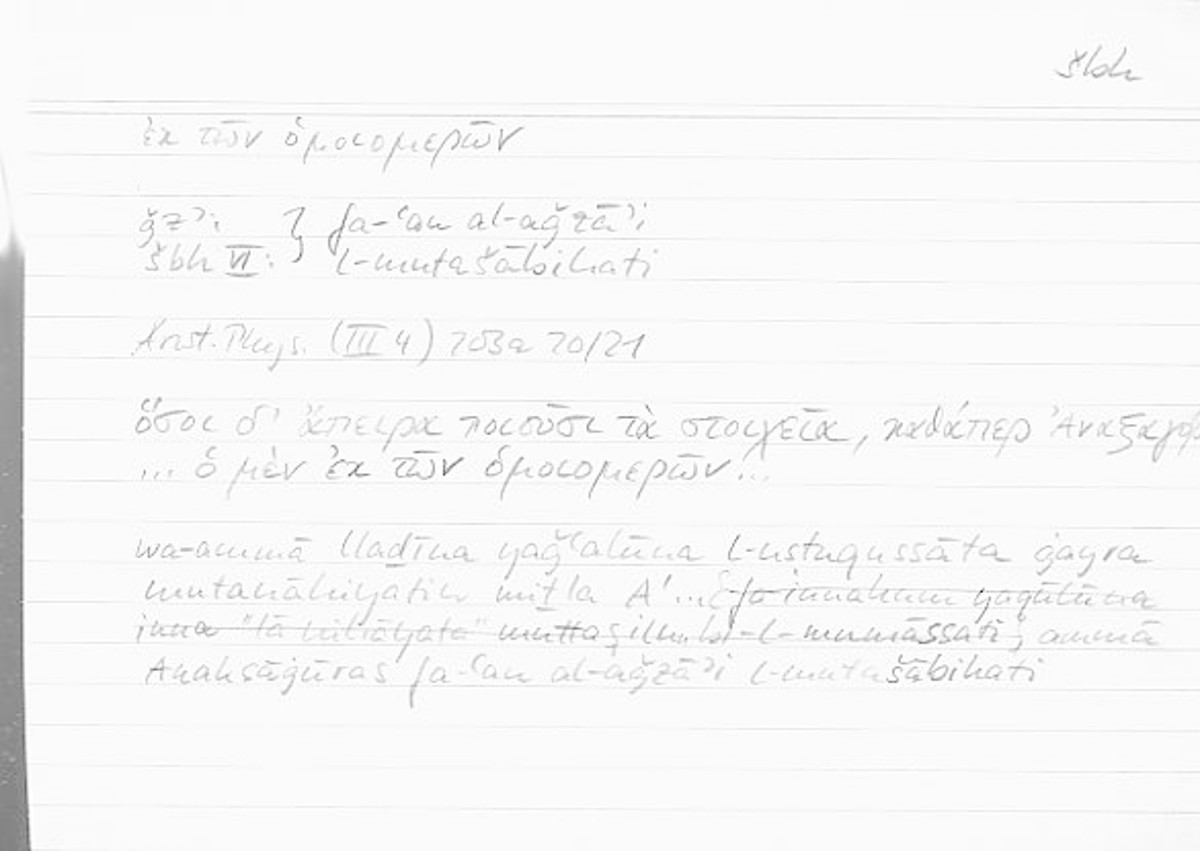 šbh
ἐκ τῶν ὁμοιομερῶν
ǧzʾ: } fa-ʿan al-aǧzāʾi
šbh VI: l-mutašābihati
Arist. Phys. (III 4) 203a 20/21
ὅσοι δ' ἄπειρα ποιοῦσι τὰ στοιχεῖα, καθάπερ Ἀναξαγόρ
... ὁ μὲν ἐκ τῶν ὁμοιομερῶν...
wa-ammā lladīna yaǧʿalūna l-usṭuqussāta ġayra
mutanāhiyatin miṯla A'... fa-innahum yaqūlūna
inna "lā nihāyata" muttaṣilun bi-l-mumāssati, ammā
Anaksāġūras fa-ʿan al-aǧzāʾi l-mutašābihati